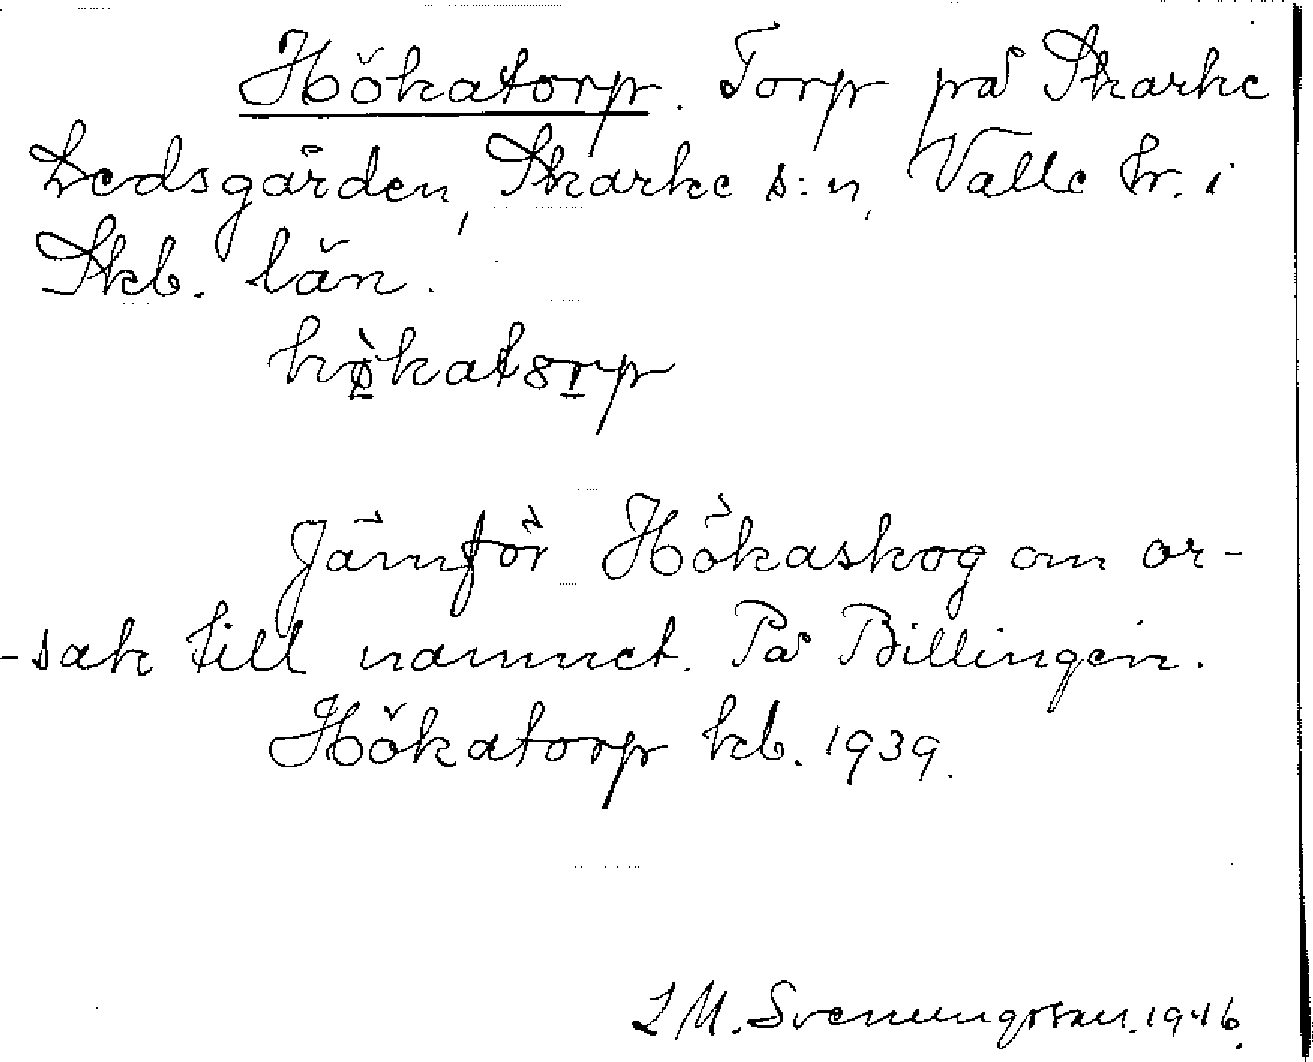 Hökatorp. Torp på Skarke
Ledsgården, Skarke s:n, Valle hr. i
Skb. län.
hø̀katorp
Jämför Hökaskog om or-
-sak till namnet. På Billingen.
Hökatorp kb. 1939.
L M. Svenungsson. 1946.